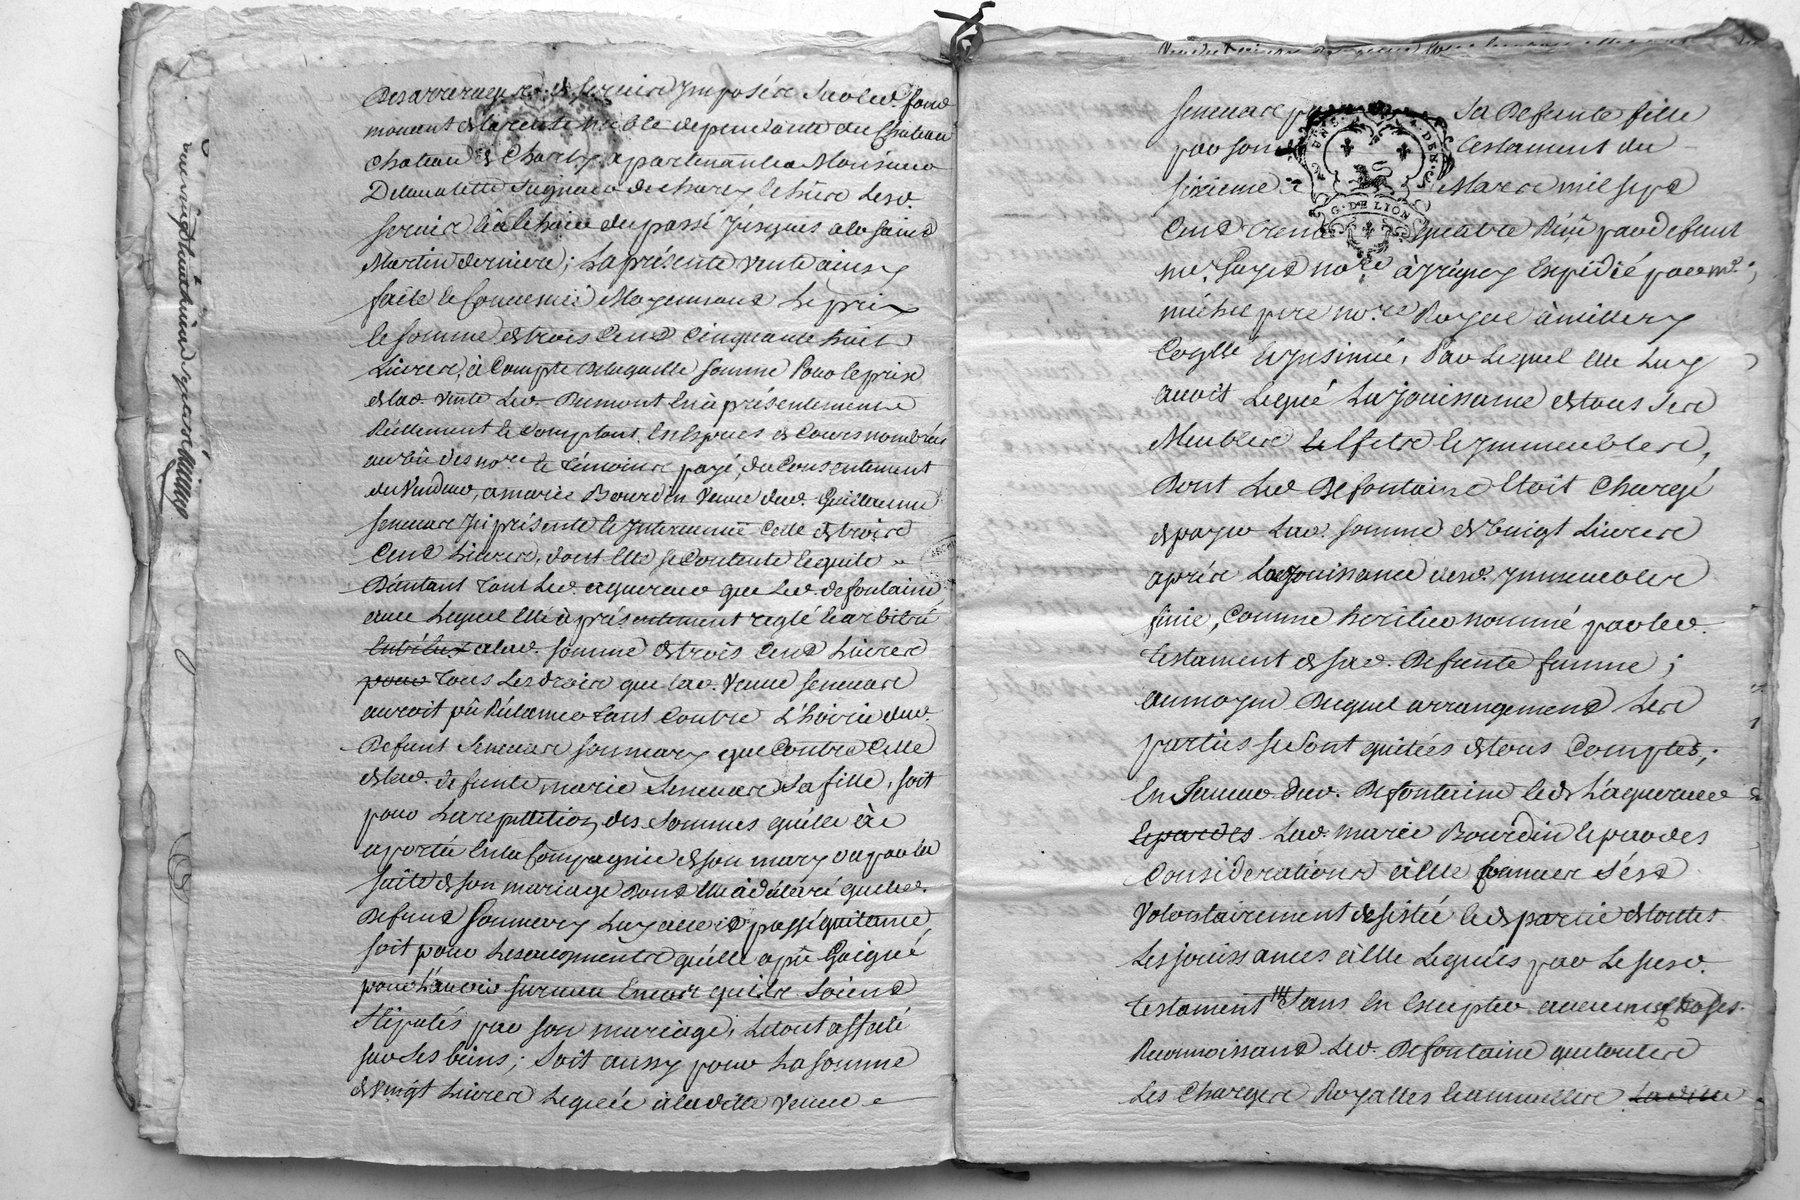 Des arrerages & servis Imposés sur led. fond
mouvant de la rente noble dependante du Chateau
Chateau de Charly apartenante a Monsieur
Delavalette Seigneur de Charly & hors lesd
servis & a le hoirie du passé Jusques a la saint
Martin derniere; La présente vente ainsy
faite & convenue Moyennant Le prix
& somme de trois Cent Cinquante huit
Livres, à Compte de laquelle somme Pour le prix
de lad. vente Led. Dumont en à présentement
Réellement & Comptant En Especes de Cours nombrées
au vû des no.re & témoins payé, du Consentement
du Vendeur, a marie Bourdin Veuve dud. Guillaume
Senevas Icy présente & Intervenue Celle de trois
Cent Livres, dont Elle se Contente & quite
D'autant tant Led. aquereur que Led. defontaine
avec Lequel Elle à présentement reglé & arbitré
alad. somme de trois Cent Livres
pour tous Les droits que lad. Veuve Senevas
auroit pû Réclamer tant Contre L'hoirie dud.
Defunt Senevas son mary que Contre Celle
de lad. defunte marie Senevas sa fille, soit
pour La repettition des sommes qu'elle à
aporté En la Compagnie de son mary ou par la
suite de son mariage Dont Elle à déclaré que led.
Defunt son mary Luy avoit passé quitance,
soit pour Les augments qu'elle a pû Gaigné
pour L'avoir survecu Encore qu'ils Soient
Stipulés par son mariage, Le tout affecté
sur ses biens; Soit aussy pour La somme
de Vingt Livres Leguée à ladite Veuve
Senevas par Sa Defunte fille
par son Testament du
sixieme Mars mil sept
Cent trente quatre Reçû par defunt
me. Payet no.re à Irigny Expédié par me.
michel pere no.re Royal à millery
Coglle & Insinué, Par Lequel Elle Luy
avoit Legué La Jouissance de tous Ses
Meubles Effets & Immeubles,
Dont Led Defontaine Etoit Chargé
de payer Lad. somme de vingt Livres
après La Jouissance desd. Immeubles
finie, Comme heritier nommé par led.
testament de sad. Defunte femme;
au moyen Duquel arrangement Les
parties se sont quitées de tous Comptes;
En faveur dud. Defontaine & de L'aquereur
Lad. marie Bourdin & par des
Considerations à Elle Connues s'est
Volontairement desistée & departie de toutes
Les jouissances à Elle Leguées par Le susd.
testament Sans En Excepter aucunes Choses.
Reconnoissant Led. Defontaine que toutes
Les Charges Royalles & annuelles Ladite
G. DE LION